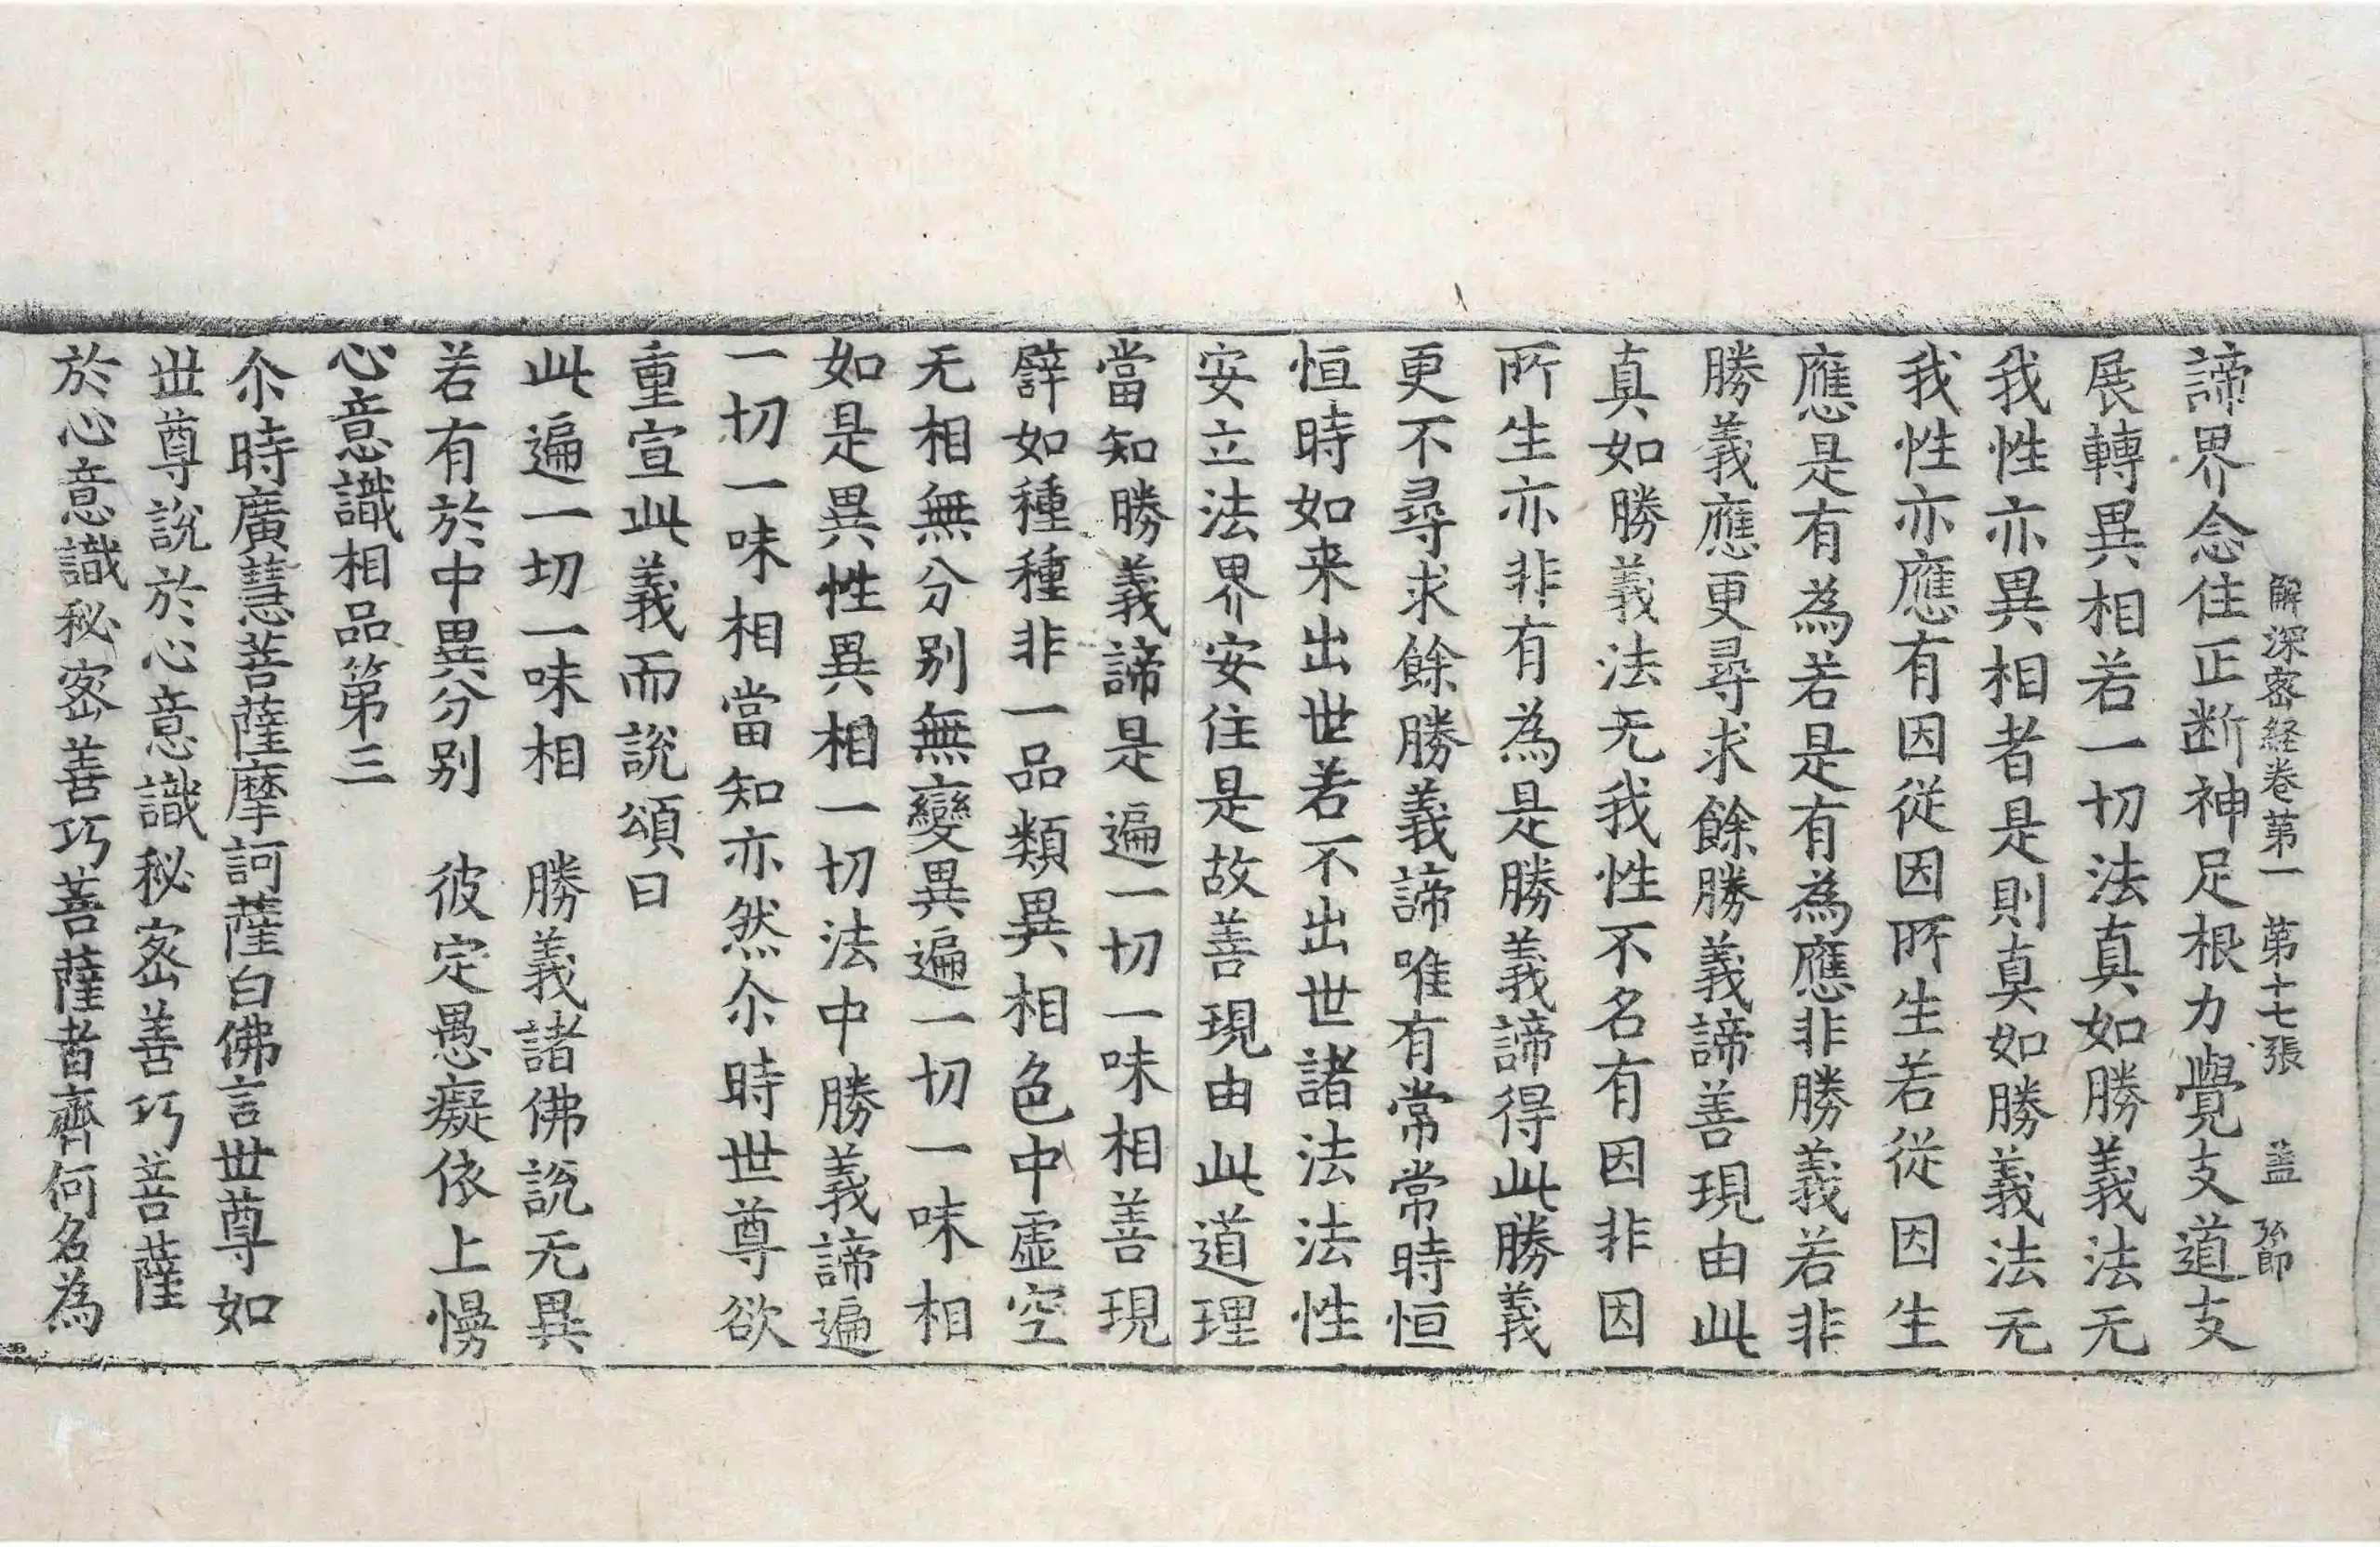 解深宻経卷第一　第十七張　葢
諦界念住正断神足根力覺支道支
展轉異相若一切法真如勝義法无
我性亦異相者是則真如勝義法无
我性亦應有因從因所生若從因生
應是有為若是有為應非勝義若非
勝義應更尋求餘勝義諦善現由此
真如勝義法无我性不名有因非因
所生亦非有為是勝義諦得此勝義
更不尋求餘勝義諦唯有常常時恒
恒時如来出世若不出世諸法法性
安立法界安住是故善現由此道理
當知勝義諦是遍一切一味相善現
譬如種種非一品類異相色中虛空
无相無分别無變異遍一切一味相
如是異性異相一切法中勝義諦遍
一切一味相當知亦然尒時世尊欲
重宣此義而說頌曰
此遍一切一味相　勝義諸佛說无異
若有於中異分别　彼定愚癡依上慢
心意識相品第三
尒時廣慧菩薩摩訶薩白佛言世尊如
世尊說於心意識秘宻善巧菩薩
於心意識秘宻善巧菩薩者齊何名為